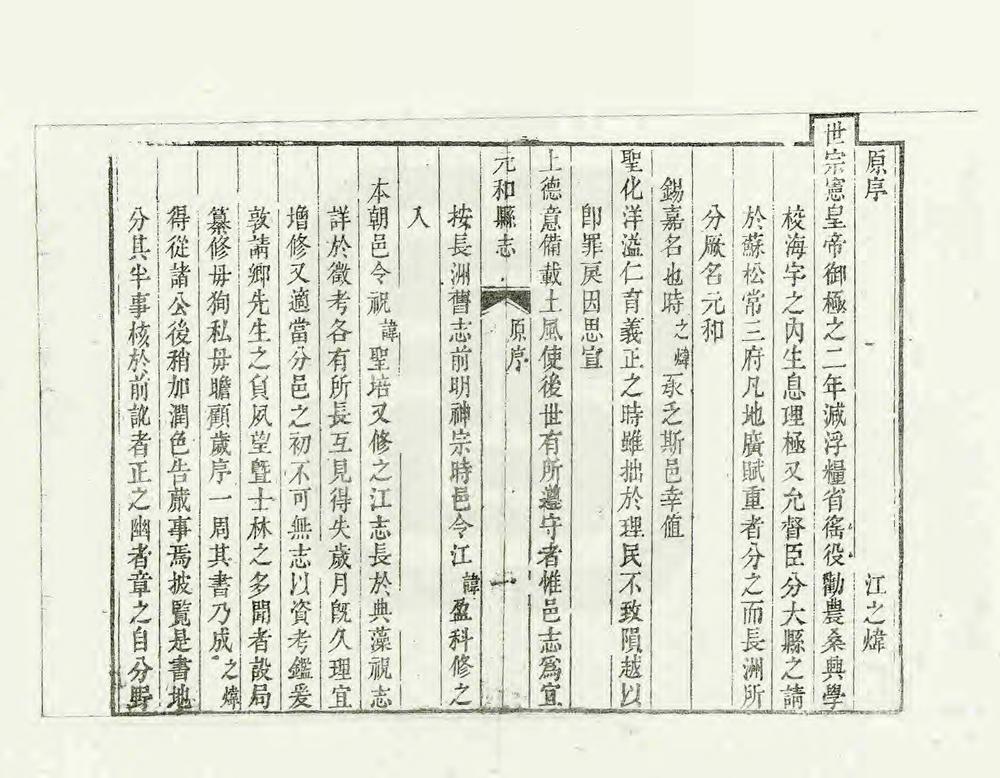 原序　江之煒
世宗憲皇帝御極之二年減浮糧省徭役勸農桑興學
校海宇之內生息理極又允督臣分大縣之請
於蘇松常三府凡地廣賦重者分之而長洲所
分厥名元和
錫嘉名也時之煒承乏斯邑幸值
聖化洋溢仁育義正之時雖拙於理民不致隕越以
卽罪戾因思宣
上德意備載土風使後世有所遵守者惟邑志爲宜
元和縣志　原序　一
按長洲舊志前明神宗時邑令江諱盈科修之
入
本朝邑令祝諱聖培又修之江志長於典藻祝志
詳於徵考各有所長互見得失歲月旣久理宜
增修又適當分邑之初不可無志以資考鑑爰
敦請鄉先生之負夙望曁士林之多聞者設局
纂修毋狥私毋瞻顧歲序一周其書乃成之煒
得從諸公後稍加潤色告蕆事焉披覽是書地
分其半事核於前訛者正之幽者章之自分野